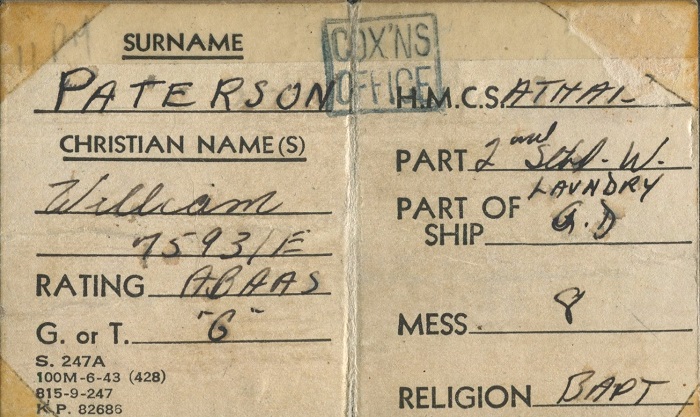 SURNAME
PATERSON
CHRISTIAN NAME(S)
William
75931/E
RATING ABAAS
G. or T. "G"
S. 247A
100M-6-43 (428)
815-9-247
K.P. 82686
COX'NS
OFFICE
H.M.C.S. ATHAL
PART 2nd Stbd. W.
LAUNDRY
PART OF SHIP G.D
MESS 8
RELIGION BAPT